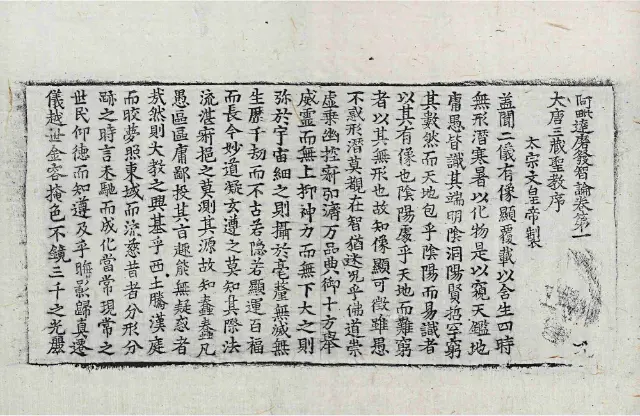 阿毗達磨發智論卷第一
大唐三藏聖教序
太宗文皇帝製
蓋聞二儀有像顯覆載以含生四時
無形潛寒暑以化物是以窺天鑑地
庸愚皆識其端明陰洞陽賢哲罕窮
其數然而天地包乎陰陽而易識者
以其有像也陰陽處乎天地而難窮
者以其無形也故知像顯可徵雖愚
不惑形潛莫覩在智猶迷況乎佛道崇
虛乘幽控寂弘濟万品典御十方舉
威靈而無上抑神力而無下大之則
弥於宇宙細之則攝於毫氂無滅無
生歷千劫而不古若隱若顯運百福
而長今妙道凝玄遵之莫知其際法
流湛寂挹之莫測其源故知蠢蠢凡
愚區區庸鄙投其旨趣能無疑惑者
哉然則大教之興基乎西土騰漢庭
而皎夢照東域而流慈昔者分形分
跡之時言未馳而成化當常現常之
世民仰德而知遵及乎晦影歸真遷
儀越世金容掩色不鏡三千之光麗